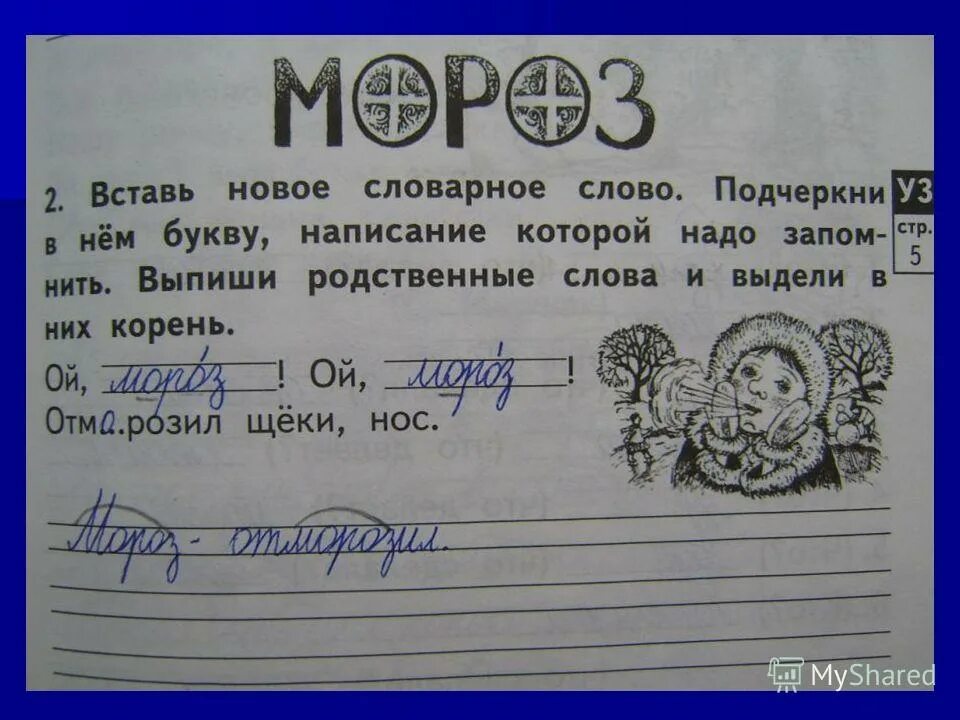 МОРОЗ
2. Вставь новое словарное слово. Подчеркни
в нём букву, написание которой надо запом-
нить. Выпиши родственные слова и выдели в
них корень.
УЗ
стр.
5
Ой, моро́з ! Ой, моро́з !
Отма.розил щёки, нос.
Мороз - отморозил.
MyShared